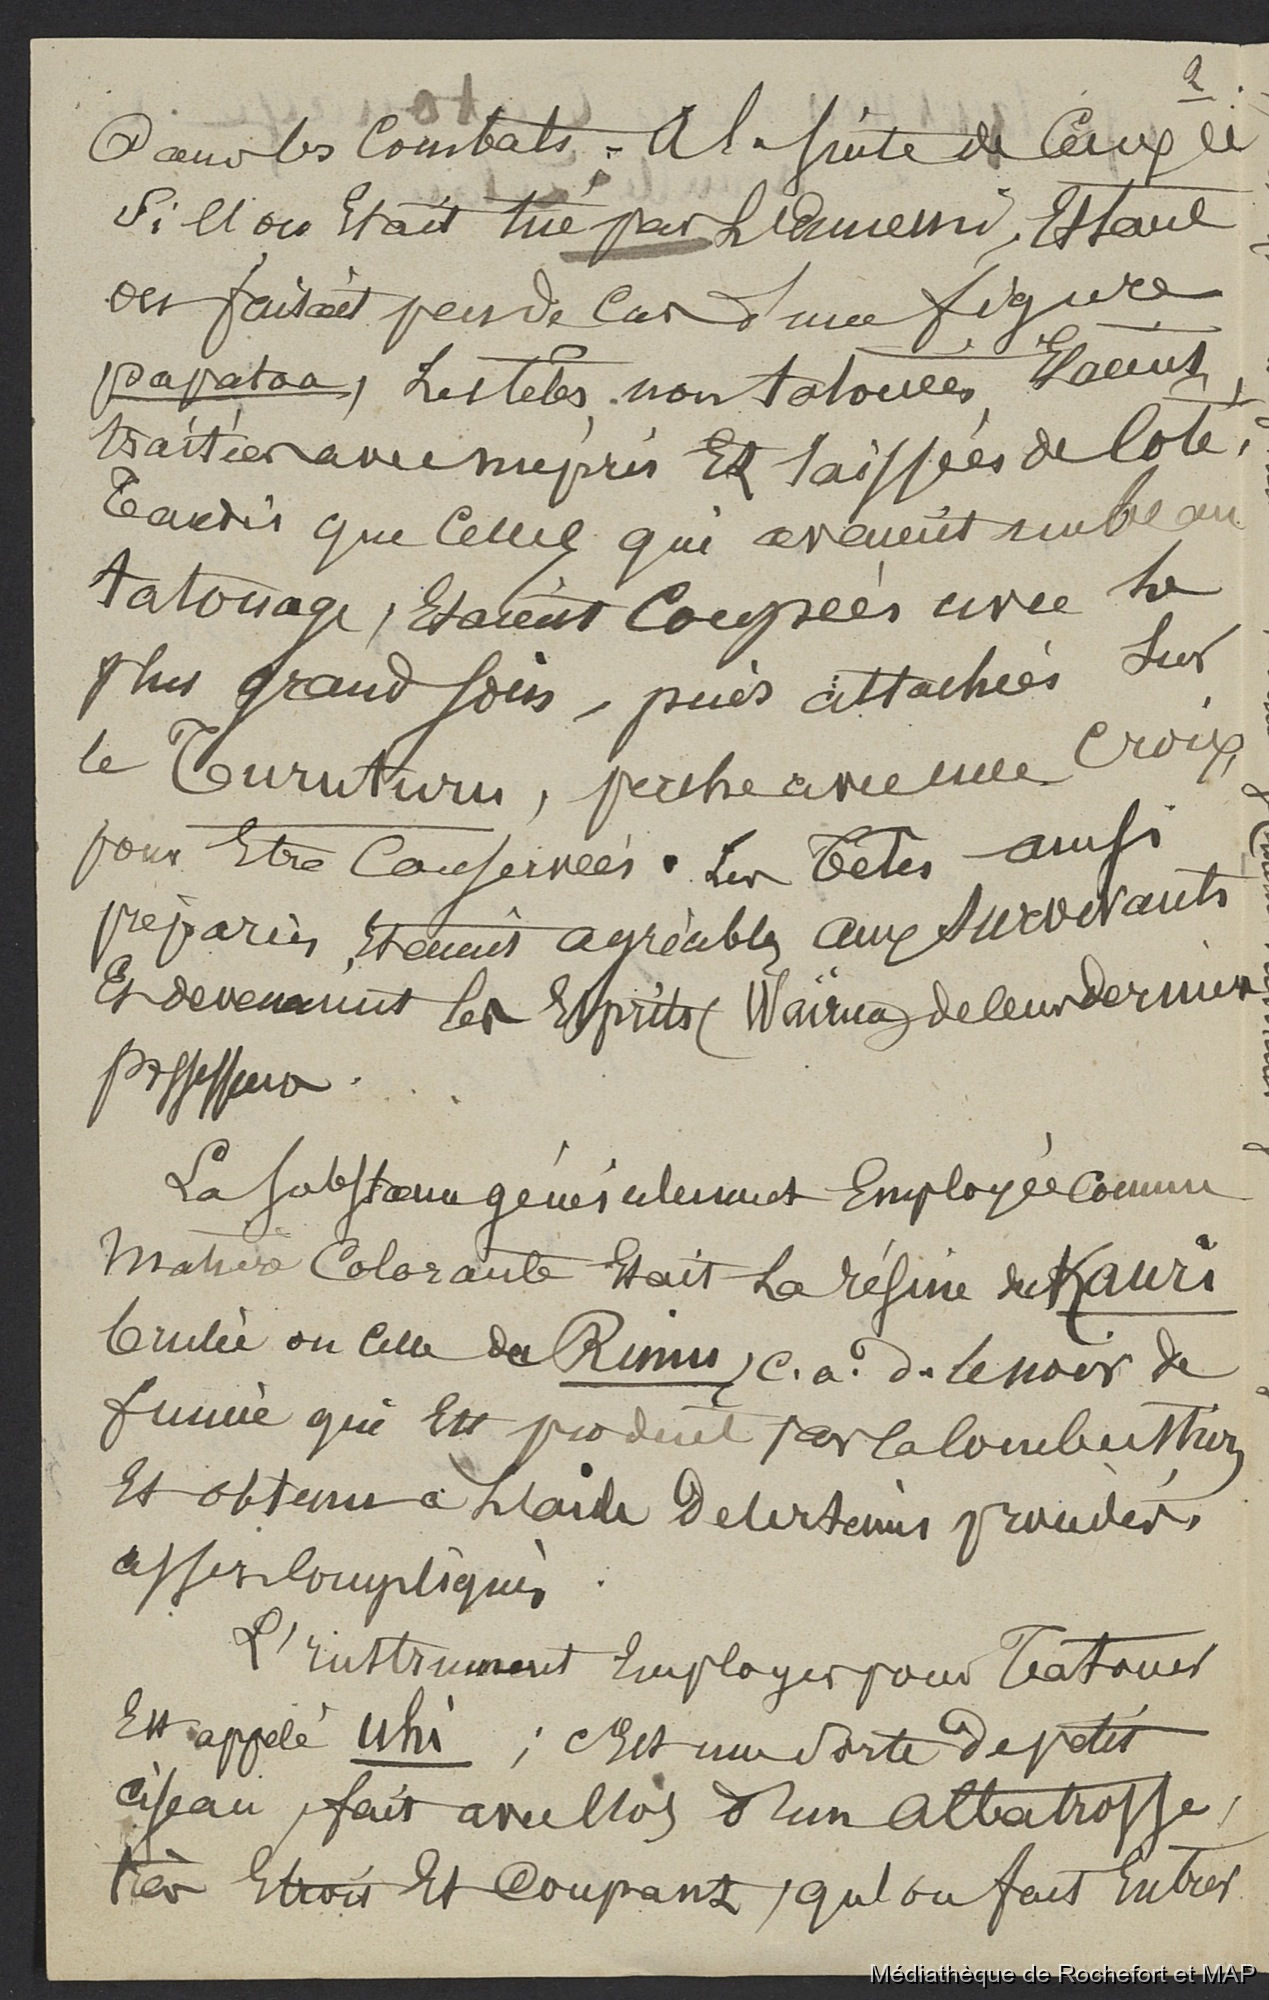 2
Dans les Combats. - A la suite de Ceux ci
Si l'on Etait tué par L'Ennemi, Et tant
on faisait peu de Cas d'une figure
papatoa, Les têtes non tatouées, Etaient
traitées avec mépris Et laissées de Coté,
Tandis que Celles qui avaient un beau
tatouage, Etaient Coupées avec le
plus grand soin, puis attachées Sur
le Turuturu, perche avec une Croix,
pour Etre Conservées. Les Têtes ainsi
préparées, Etaient agréables aux Survivants
Et devenaient les Esprits (Waïrua) de leur dernier
possesseur.
La substance généralement Employée comme
Matière Colorante Etait La résine de Kauri
brulée ou celle de Rimu, c. a. d. le noir de
fumée qui Est produit par la Combustion
Et obtenu a L'aide De Certains procédés,
assez Compliqués.
L'instrument Employer pour Tatouer
Est appelé uhi ; c'Est une Sorte De petit
ciseau, fait avec l'os d'un Albatrosse,
très Etroit Et Coupant, qu'l on fait Entrer
Médiathèque de Rochefort et MAP